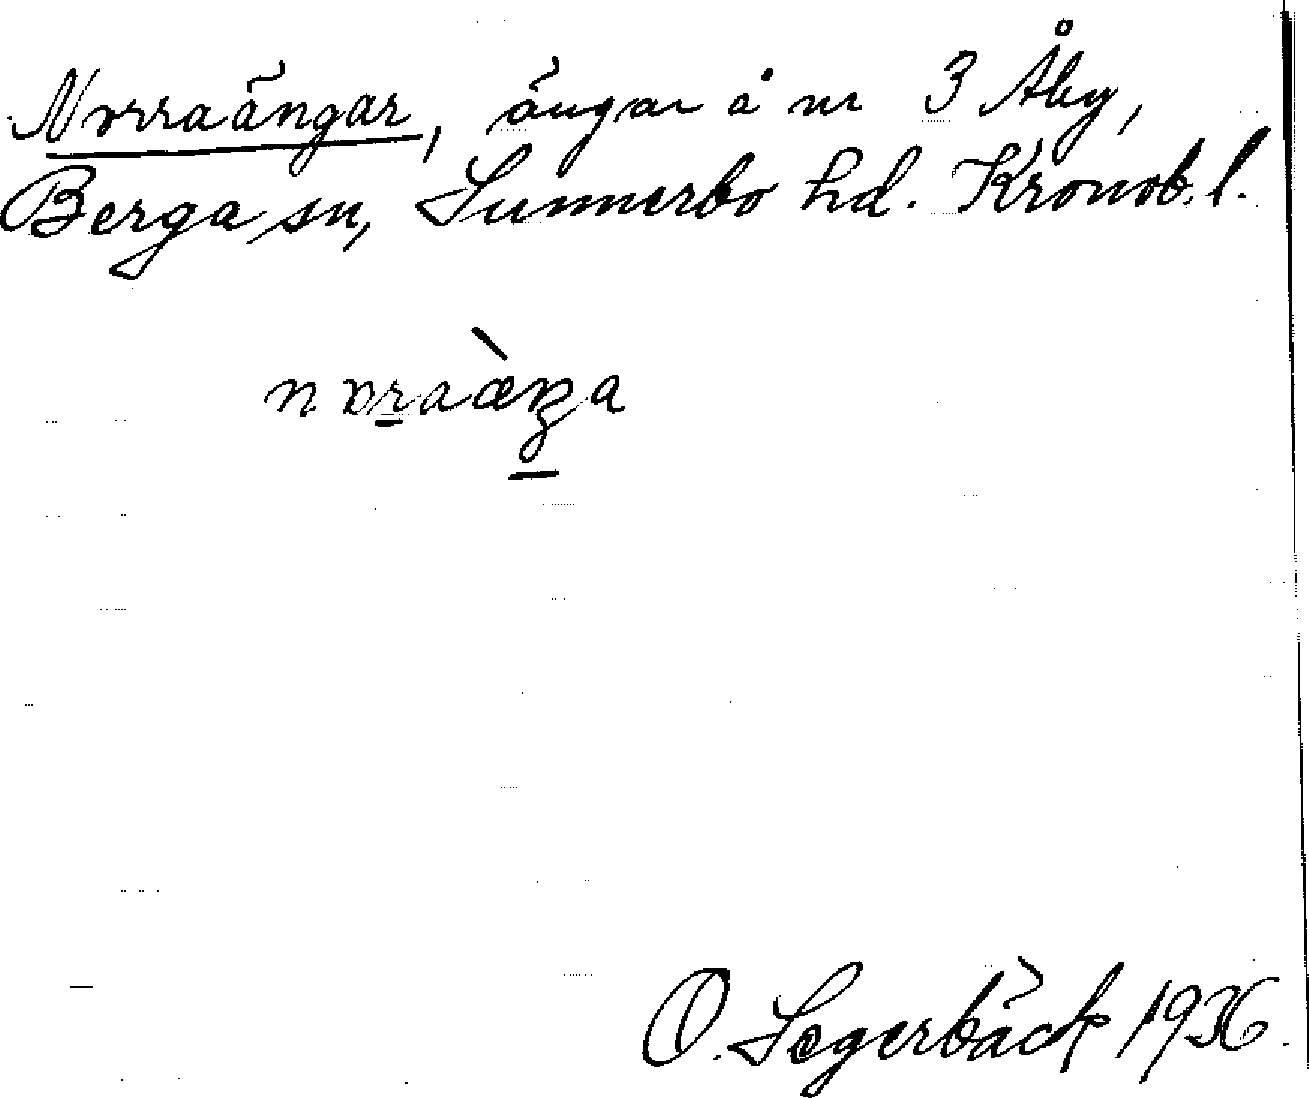 Norraängar, ängar å nr 3 Åby,
Berga sn, Sunnerbo hd. Kronob. l.
nɒraæ̀ŋa
O. Segerbäck 1936.